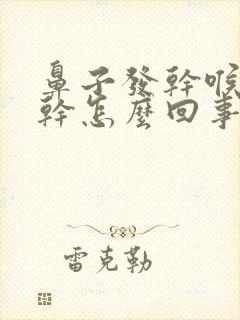 鼻子發幹喉
幹怎麼回事
雷克勒